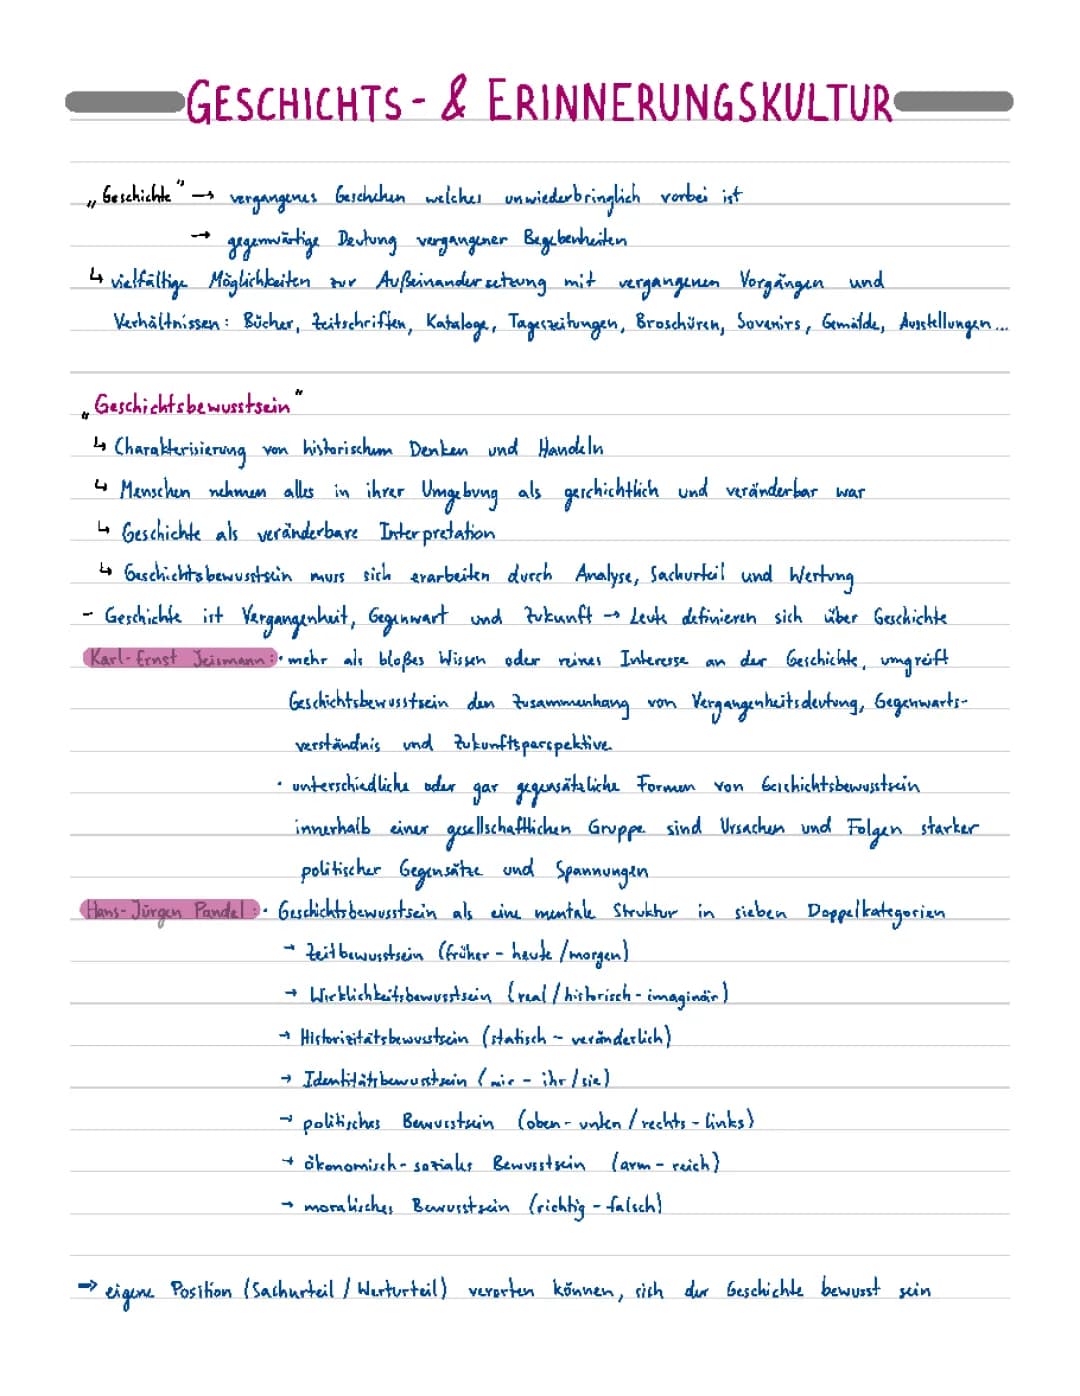 GESCHICHTS- & ERINNERUNGSKULTUR
„Geschichte" → vergangenes Geschehen welches unwiederbringlich vorbei ist
→ gegenwärtige Deutung vergangener Begebenheiten
↳ vielfältige Möglichkeiten zur Außeinandersetzung mit vergangenen Vorgängen und
Verhältnissen: Bücher, Zeitschriften, Kataloge, Tageszeitungen, Broschüren, Sovenirs, Gemälde, Ausstellungen...
„Geschichtsbewusstsein"
↳ Charakterisierung von historischem Denken und Handeln
↳ Menschen nehmen alles in ihrer Umgebung als geschichtlich und veränderbar war
↳ Geschichte als veränderbare Interpretation
↳ Geschichtsbewusstsein muss sich erarbeiten durch Analyse, Sachurteil und Wertung
- Geschichte ist Vergangenheit, Gegenwart und Zukunft → Leute definieren sich über Geschichte
Karl-Ernst Jeismann: • mehr als bloßes Wissen oder reines Interesse an der Geschichte, umgreift
Geschichtsbewusstsein den Zusammenhang von Vergangenheitsdeutung, Gegenwarts-
verständnis und Zukunftsperspektive.
• unterschiedliche oder gar gegensätzliche Formen von Geschichtsbewusstsein
innerhalb einer gesellschaftlichen Gruppe sind Ursachen und Folgen starker
politischer Gegensätze und Spannungen
Hans-Jürgen Pandel: • Geschichtsbewusstsein als eine mentale Struktur in sieben Doppelkategorien
→ Zeitbewusstsein (früher - heute / morgen)
→ Wirklichkeitsbewusstsein (real / historisch - imaginär)
→ Historizitätsbewusstsein (statisch - veränderlich)
→ Identitätsbewusstsein (wir - ihr / sie)
→ politisches Bewusstsein (oben - unten / rechts - links)
→ ökonomisch-soziales Bewusstsein (arm - reich)
→ moralisches Bewusstsein (richtig - falsch)
⇒ eigene Position (Sachurteil / Werturteil) verorten können, sich der Geschichte bewusst sein